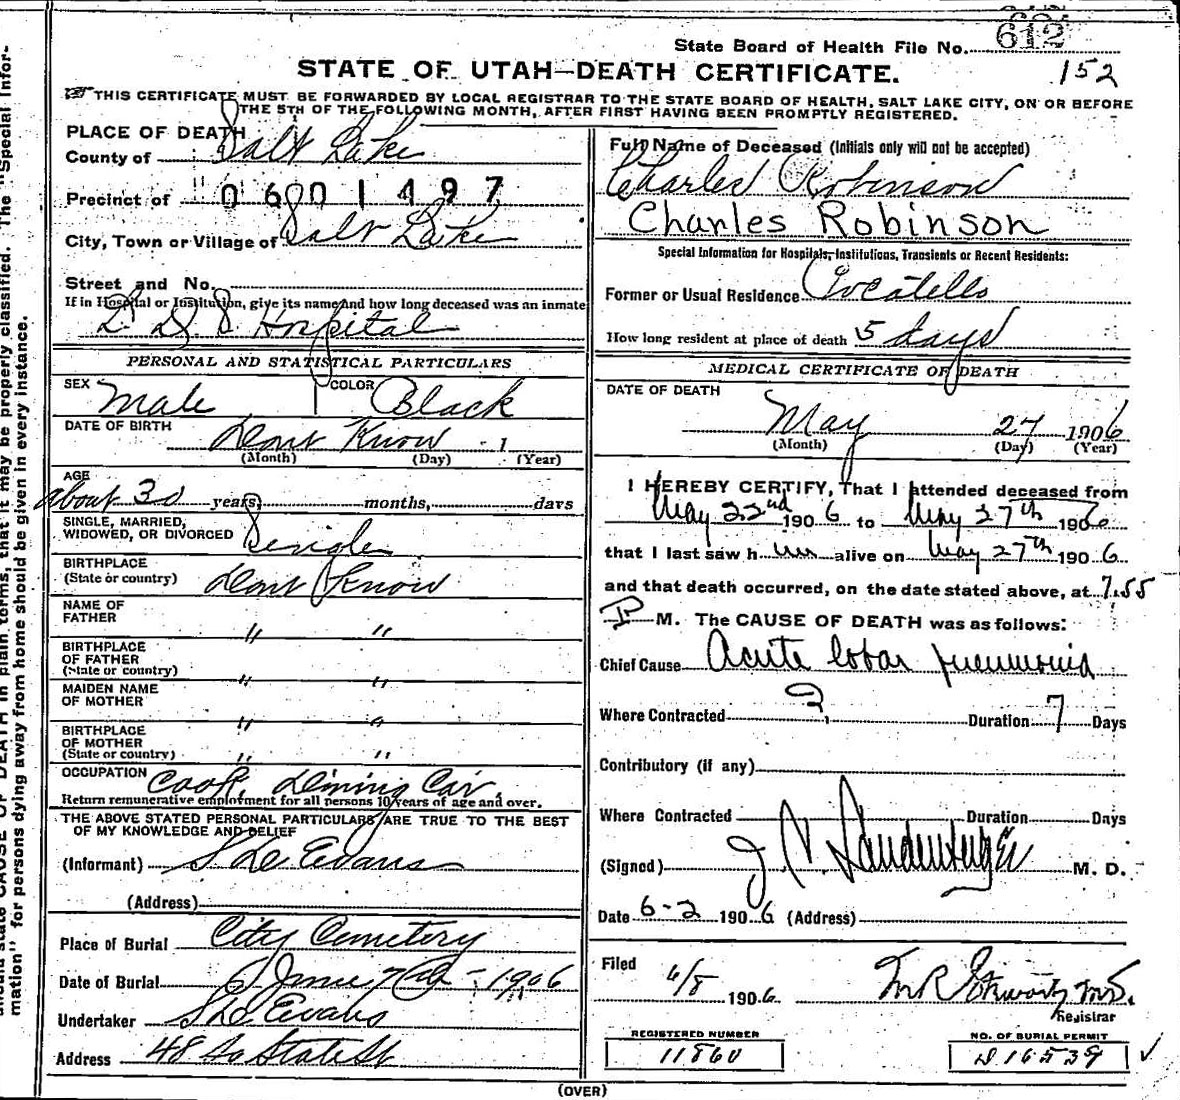 State Board of Health File No. 612
152
STATE OF UTAH—DEATH CERTIFICATE.
THIS CERTIFICATE MUST BE FORWARDED BY LOCAL REGISTRAR TO THE STATE BOARD OF HEALTH, SALT LAKE CITY, ON OR BEFORE
THE 5TH OF THE FOLLOWING MONTH, AFTER FIRST HAVING BEEN PROMPTLY REGISTERED.
PLACE OF DEATH
County of Salt Lake
Precinct of 0601497
City, Town or Village of Salt Lake
Street and No.
If in Hospital or Institution, give its name and how long deceased was an inmate
L D S Hospital
PERSONAL AND STATISTICAL PARTICULARS
SEX Male COLOR Black
DATE OF BIRTH Dont Know 1
(Month) (Day) (Year)
AGE
about 30 years, months, days
SINGLE, MARRIED,
WIDOWED, OR DIVORCED Single
BIRTHPLACE
(State or country) dont Know
NAME OF
FATHER " "
BIRTHPLACE
OF FATHER
(State or country) " "
MAIDEN NAME
OF MOTHER " "
BIRTHPLACE
OF MOTHER
(State or country) " "
OCCUPATION Cook, Dining Car.
Return remunerative employment for all persons 10 years of age and over.
THE ABOVE STATED PERSONAL PARTICULARS ARE TRUE TO THE BEST
OF MY KNOWLEDGE AND BELIEF
(Informant) S D Evans
(Address)
Place of Burial City Cemetery
Date of Burial June 1906
Undertaker S D Evans
Address 48 So State St
Full Name of Deceased (Initials only will not be accepted)
Charles Robinson
Charles Robinson
Special Information for Hospitals, Institutions, Transients or Recent Residents:
Former or Usual Residence Pocatello
How long resident at place of death 5 days
MEDICAL CERTIFICATE OF DEATH
DATE OF DEATH
May 27 1906
(Month) (Day) (Year)
I HEREBY CERTIFY, That I attended deceased from
May 22nd 1906 to May 27th 1906
that I last saw him alive on May 27th 1906
and that death occurred, on the date stated above, at 7.55
P M. The CAUSE OF DEATH was as follows:
Chief Cause Acute lobar pneumonia
Where Contracted ? Duration 7 Days
Contributory (if any)
Where Contracted Duration Days
(Signed) M. D.
Date 6-2 1906 (Address)
Filed 6/8 1906
Registrar
REGISTERED NUMBER
11860
NO. OF BURIAL PERMIT
D16539
(OVER)
mation" for persons dying away from home should be given in every instance.